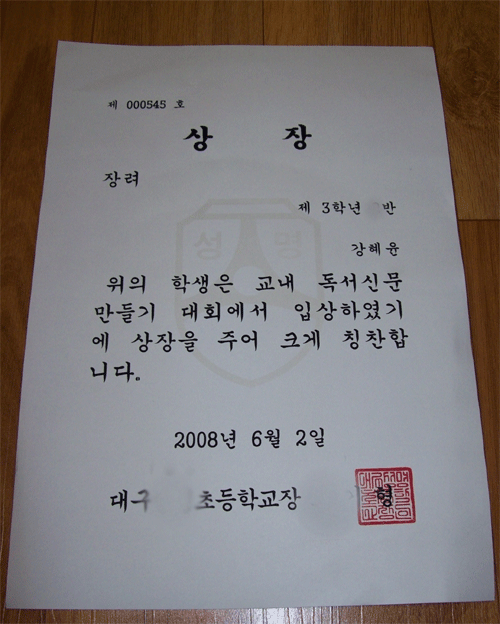 제 000545 호
상 장
장려
제 3학년 반
강혜윤
성명
위의 학생은 교내 독서신문
만들기 대회에서 입상하였기
에 상장을 주어 크게 칭찬합
니다.
2008년 6월 2일
대구 초등학교장 형